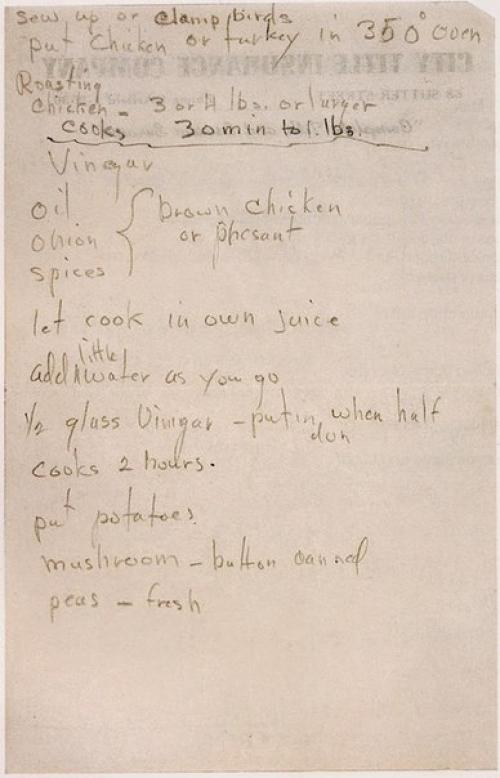 sew up or clamp birds
put Chicken or turkey in 350° oven
Roasting
Chicken - 3 or 4 lbs. or larger
cooks 30 min to 1. lbs
Vinegar
oil
onion
spices
brown chicken
or phesant
let cook in own juice
add little water as you go
1/2 glass Vinigar - put in when half
don
Cooks 2 hours.
put potatoes
mushroom - button canned
peas - fresh
CITY TITLE INSURANCE COMPANY